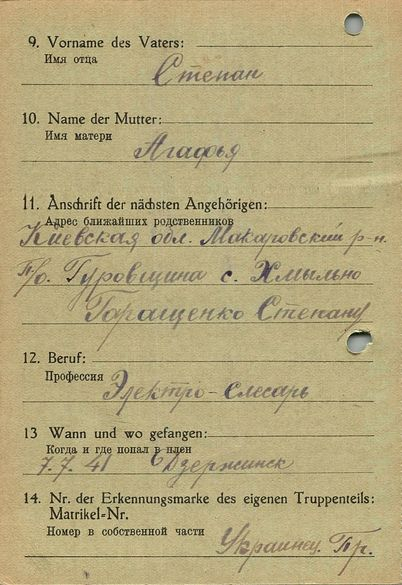 9. Vorname des Vaters:
Имя отца
Степан
10. Name der Mutter:
Имя матери
Агафья
11. Anschrift der nächsten Angehörigen:
Адрес ближайших родственников
Киевская обл. Макаровский р-н.
П/о. Гуровщина с. Хмыльно
Гаращенко Степану
12. Beruf:
Профессия
Электро-слесарь
13 Wann und wo gefangen:
Когда и где попал в плен
7.7.41 Дзержинск
14. Nr. der Erkennungsmarke des eigenen Truppenteils:
Matrikel-Nr.
Номер в собственной части
Украинец. Пр.